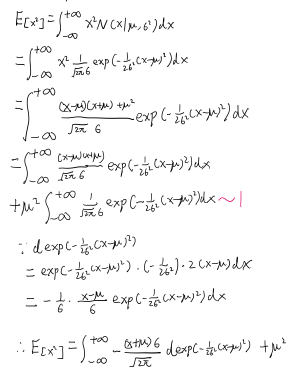 E[x²]=∫_{-∞}^{+∞} x²N(x|μ,6²)dx
=∫_{-∞}^{+∞} x² 1/(√2π 6) exp(-1/26² (x-μ)²)dx
=∫_{-∞}^{+∞} ((x-μ)(x+μ)+μ²)/(√2π 6) exp(-1/26² (x-μ)²)dx
=∫_{-∞}^{+∞} (x-μ)(x+μ)/(√2π 6) exp(-1/26² (x-μ)²)dx
+μ²∫_{-∞}^{+∞} 1/(√2π 6) exp(-1/26² (x-μ)²)dx ~1
∵ dexp(-1/26² (x-μ)²)
= exp(-1/26² (x-μ)²)·(-1/26²)·2(x-μ)dx
= -1/6 · (x-μ)/6 exp(-1/26² (x-μ)²)dx
∴ E[x²]=∫_{-∞}^{+∞} -((x+μ)6)/√2π dexp(-1/26² (x-μ)²) +μ²